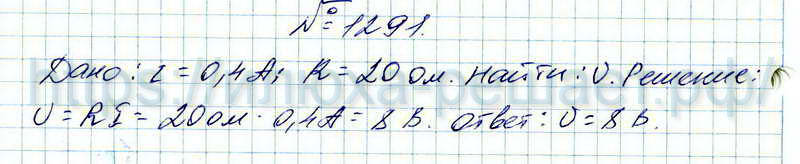 № 1291.
Дано: I = 0,4 А; R = 20 ом. Найти: U. Решение:
U = RI = 20 ом · 0,4 А = 8 В. Ответ: U = 8 В.